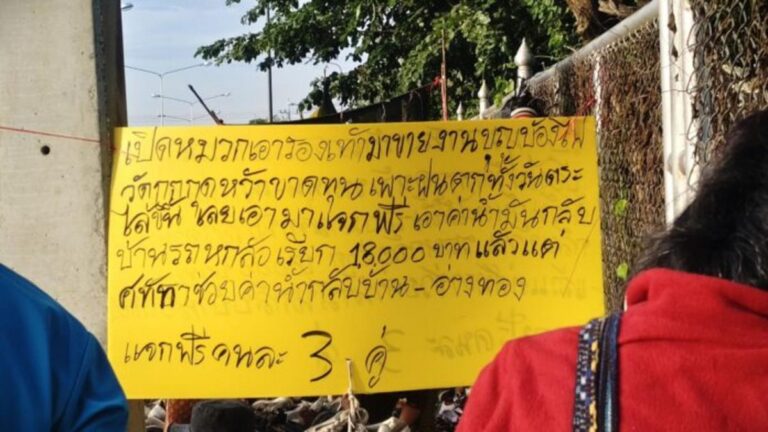 เปิดหมวกเอารองเท้ามาขายงานบุญบ้องไฟ
วัดกุดหว้าขาดทุน เพาะฝนตกทั้งวันตระ
ไล่ขึ้น เลยเอามาแจกฟรี เอาค่าน้ำมันกลับ
บ้านรถหกล้อเรียก 18,000 บาท แล้วแต่
ศทัทาช่วยค่าน้ำกลับบ้าน - อ่างทอง
แจกฟรีคนละ 3 คู่